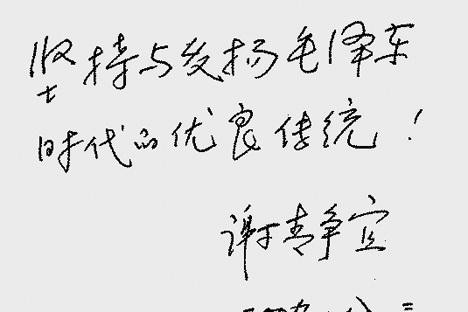 坚持与发扬毛泽东
时代的优良传统！
谢静宜